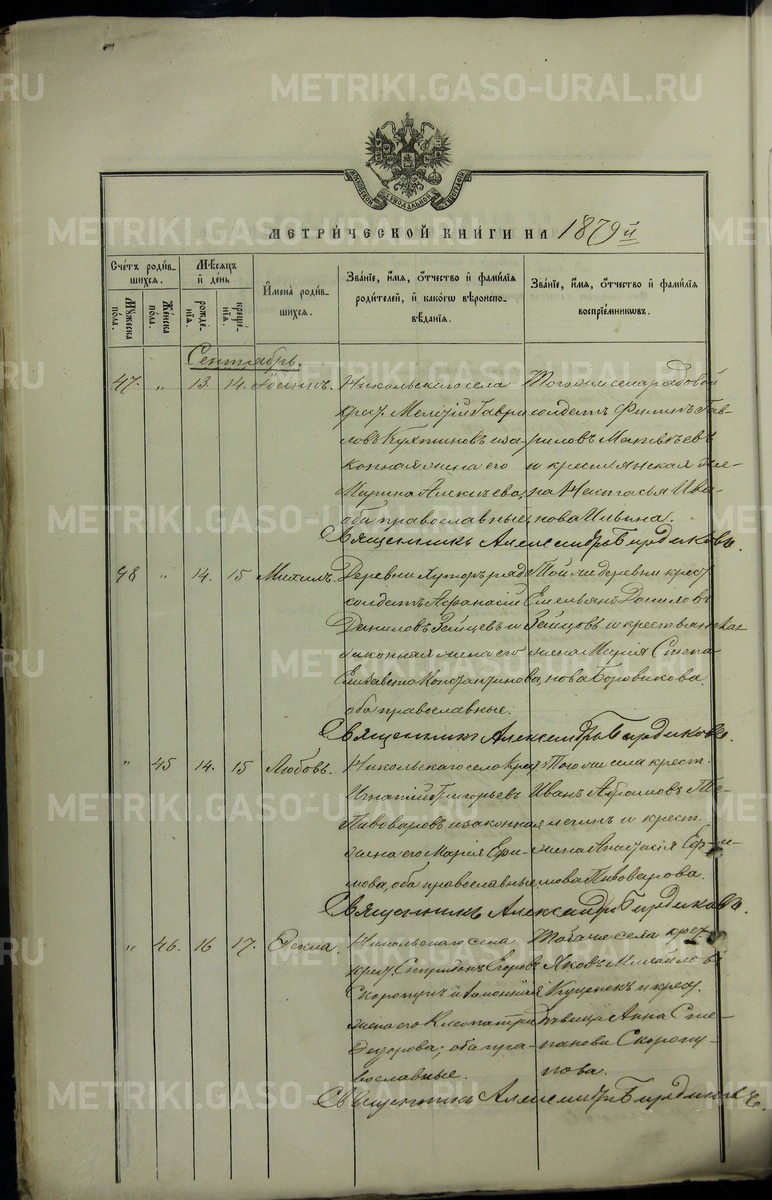 METRIKI.GASO-URAL.RU
МЕТРИ́ЧЕСКОЙ КНИ́ГИ НА 1879 й
Сче́тъ роди́в-
шихся.
Мѣ́сяцъ
и҆ де́нь
И҆мена̀ роди́в-
шихся.
Зва́нїе, и҆́мя, о҆́тчество и҆ фами́лїя
роди́телей, и҆ како́гѡ вѣроиспо-
вѣ́данїя.
Зва́нїе, и҆́мя, о҆́тчество и҆ фами́лїя
воспрїе́мникѡвъ.
Мꙋ́жеска
по́ла.
Же́нска
по́ла.
рожде́-
нїя.
креще́-
нїя.
Сентябрь.
47. „ 13. 14.
Никольскаго села
крест. Гаври-
ловъ и за-
конная жена его
Марина
оба православные
Того же села рядовой
солдатъ Филипъ Гав-
риловъ
и крестьянская
Настасья Ива-
нова Ильина.
Священникъ Александръ Бирдюковъ.
48 „ 14. 15 Михаилъ.
Деревни Хуторъ ряд.
солдатъ Афанасій
Даниловъ Зейцевъ и
законная жена его
Елизавета Константинова,
оба православные.
Той же деревни крест.
Емельянъ Даниловъ
Зейцовъ и крестьянская
жена Марія Степа-
нова Боровикова.
Священникъ Александръ Бирдюковъ.
„ 45 14. 15 Любовь.
Никольскаго села крест.
Игнатій Григорьевъ
Пивоваровъ и законная
жена его Марія Ефи-
мова, оба православные
Того же села крест.
Иванъ Абрамовъ
и крест.
жена Анастасія Ефи-
мова Пивоварова.
Священникъ Александръ Бирдюковъ.
„ 46. 16 17. Фекла.
Никольскаго села
крест. Спиридонъ Егоровъ
Скоропупъ и законная
жена его Клеопатра
Федорова; оба пра-
вославные.
Того же села крест.
Яковъ Михайловъ
Куценокъ и крест.
дѣвица Анна Сте-
панова Скоропу-
пова.
Священникъ Александръ Бирдюковъ.